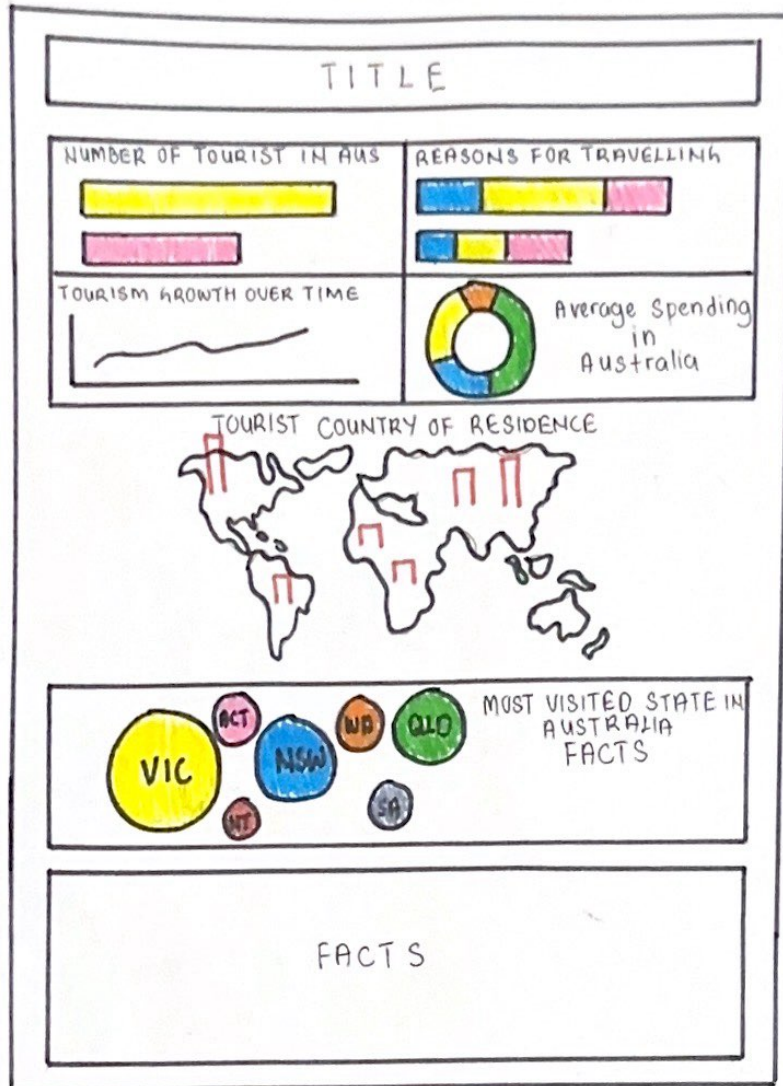 TITLE
NUMBER OF TOURIST IN AUS
REASONS FOR TRAVELLING
TOURISM GROWTH OVER TIME
Average Spending
in
Australia
TOURIST COUNTRY OF RESIDENCE
VIC
ACT
NSW
WA
QLD
NT
SA
MOST VISITED STATE IN
AUSTRALIA
FACTS
FACTS